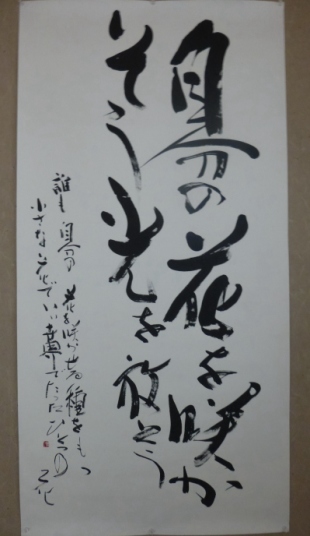 自分の花を咲か
そう光を放とう
誰も自分の花を咲かす種をもつ
小さな花でいい
たったひとつの